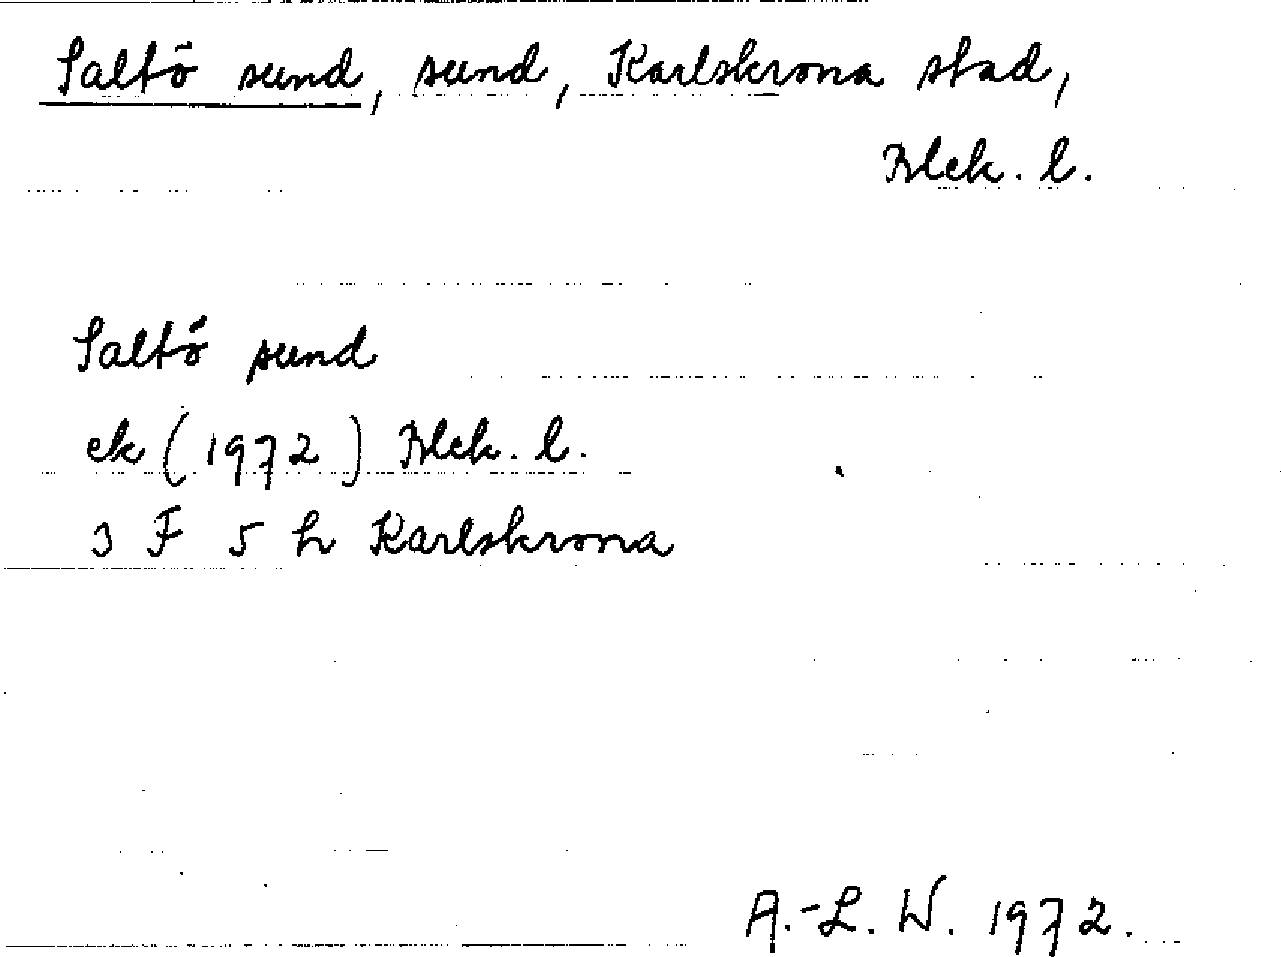 Saltö sund, sund, Karlskrona stad,
Blek. l.
Saltö sund
ek (1972) Blek. l.
3 F 5 h Karlskrona
A.-L. W. 1972.